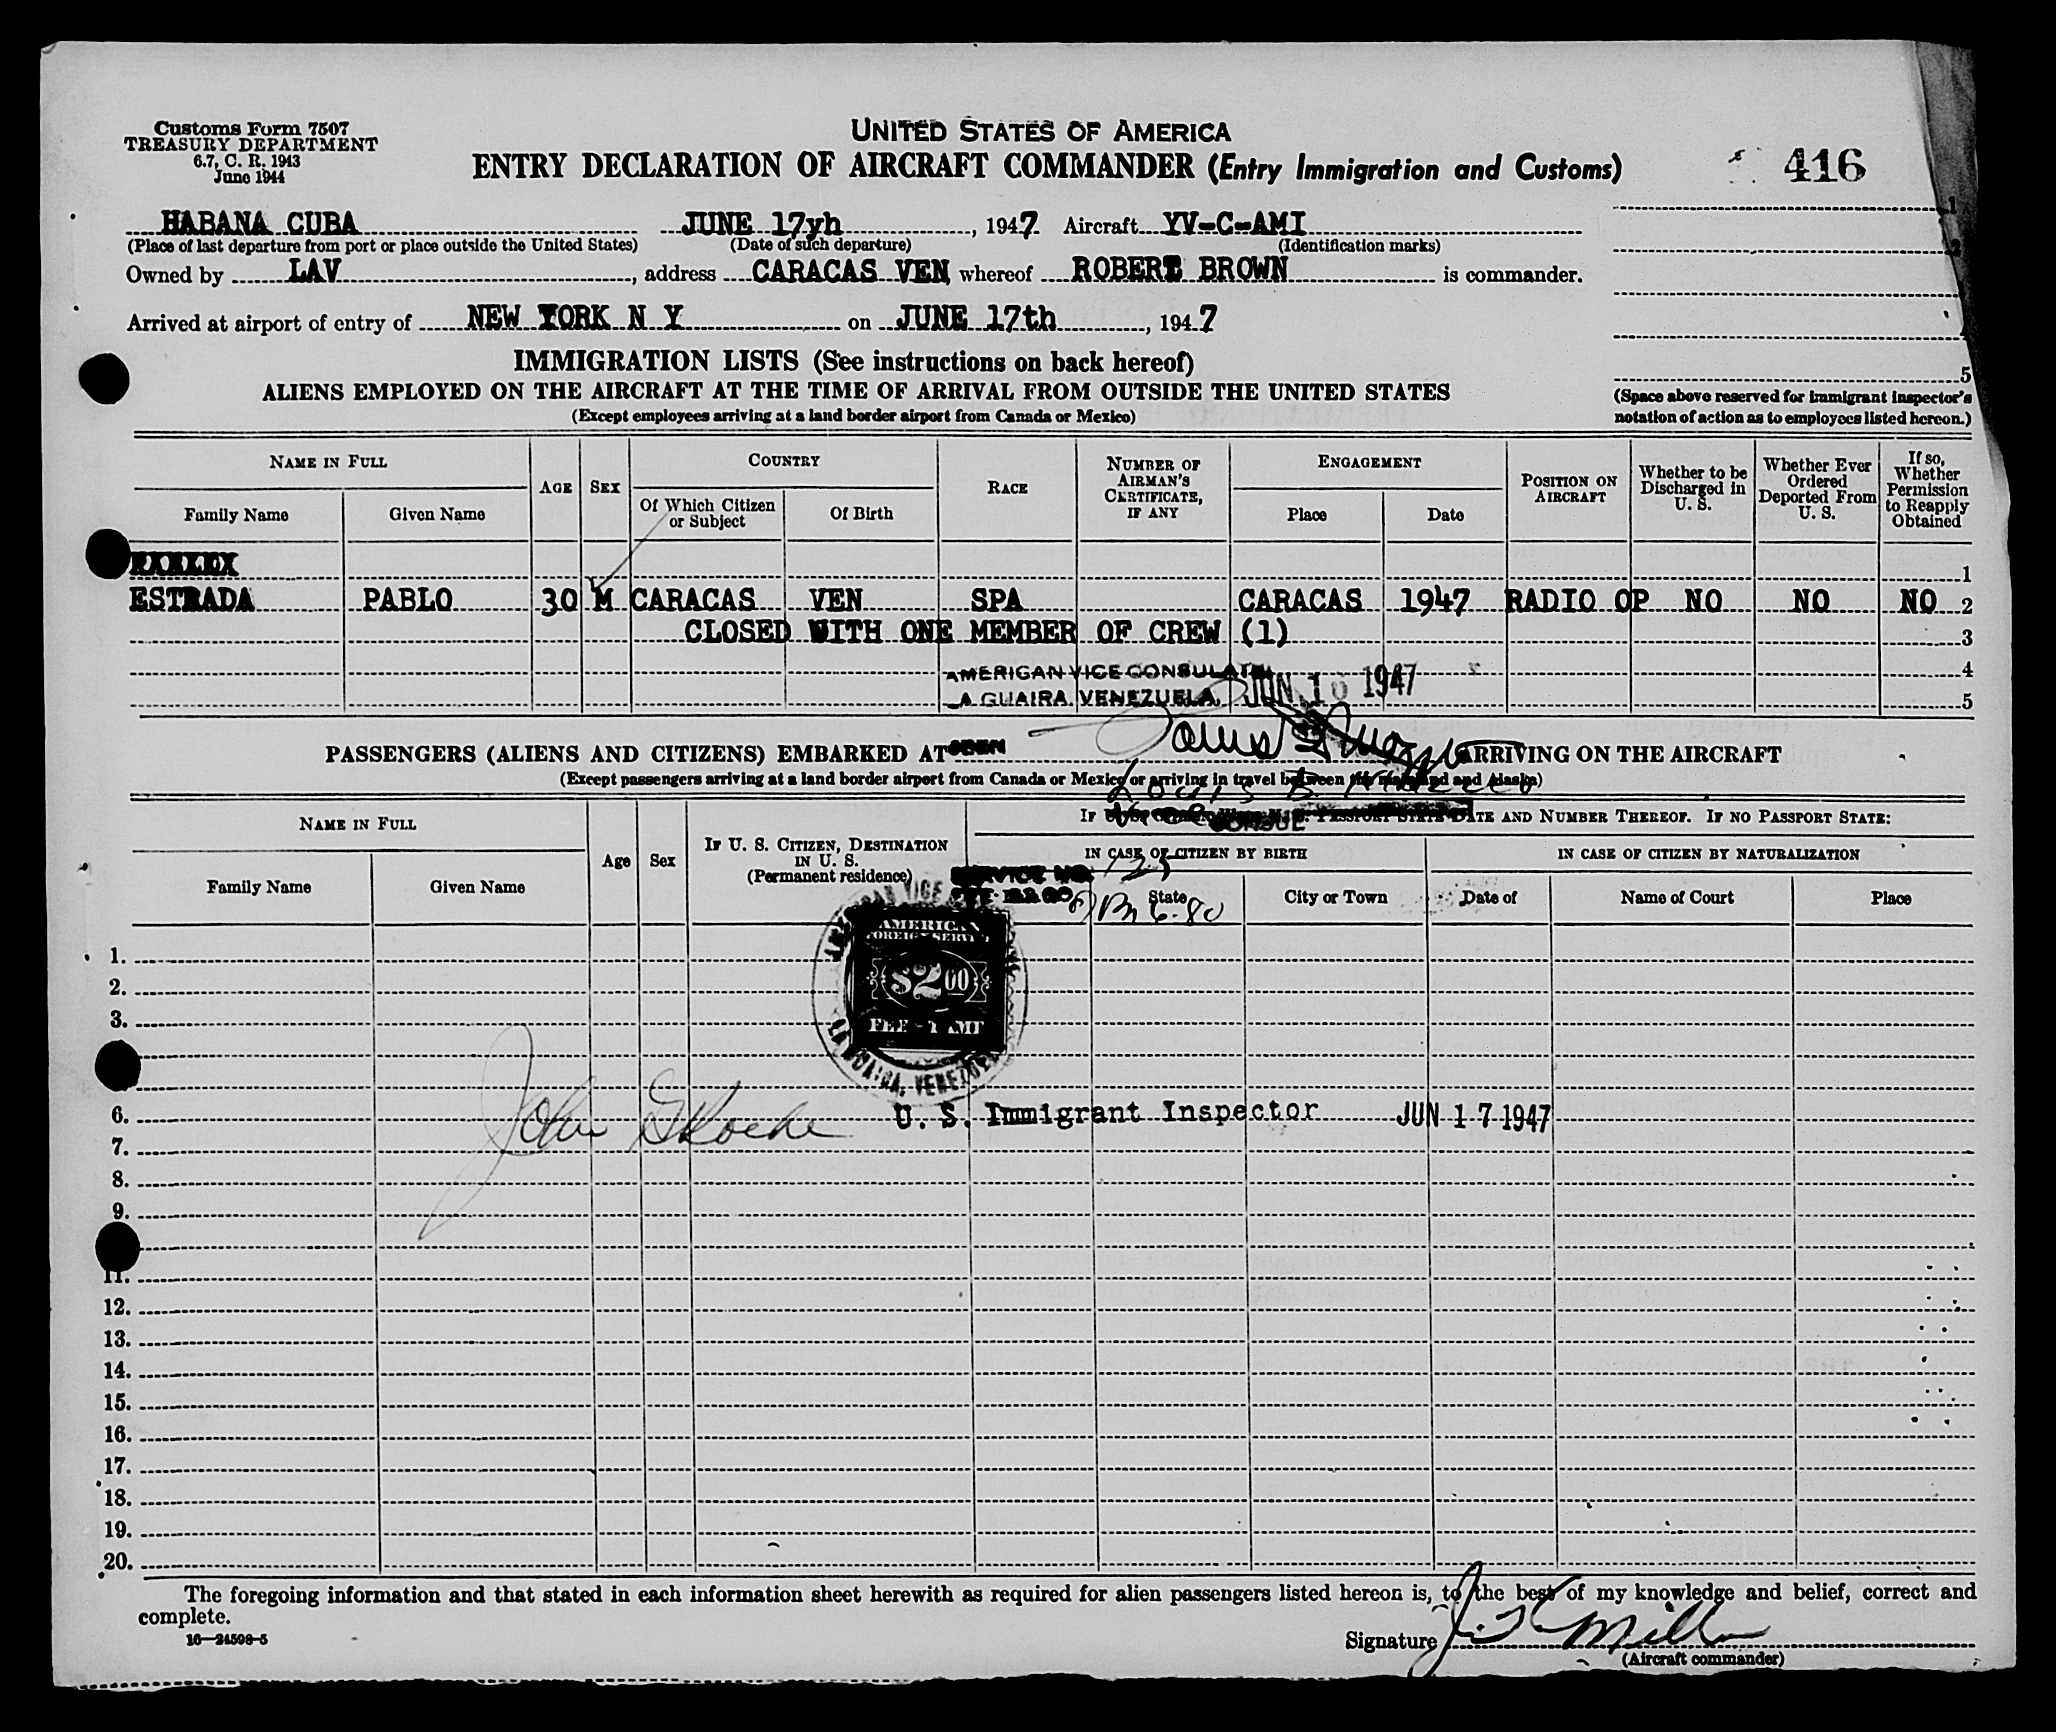 Customs Form 7507
TREASURY DEPARTMENT
6.7, C. R. 1943
June 1944
UNITED STATES OF AMERICA
ENTRY DECLARATION OF AIRCRAFT COMMANDER (Entry Immigration and Customs)
416
HABANA CUBA JUNE 17yh, 1947 Aircraft YV-C-AMI
(Place of last departure from port or place outside the United States) (Date of such departure) (Identification marks)
Owned by LAV, address CARACAS VEN, whereof ROBERT BROWN is commander.
Arrived at airport of entry of NEW YORK N Y on JUNE 17th, 1947
1
2
5
IMMIGRATION LISTS (See instructions on back hereof)
ALIENS EMPLOYED ON THE AIRCRAFT AT THE TIME OF ARRIVAL FROM OUTSIDE THE UNITED STATES
(Except employees arriving at a land border airport from Canada or Mexico)
(Space above reserved for immigrant inspector's
notation of action as to employees listed hereon.)
NAME IN FULL AGE SEX COUNTRY RACE NUMBER OF AIRMAN'S CERTIFICATE, IF ANY ENGAGEMENT POSITION ON AIRCRAFT Whether to be Discharged in U. S. Whether Ever Ordered Deported From U. S. If so, Whether Permission to Reapply Obtained
Family Name Given Name Of Which Citizen or Subject Of Birth Place Date
1
ESTRADA PABLO 30 M CARACAS VEN SPA CARACAS 1947 RADIO OP NO NO NO 2
CLOSED WITH ONE MEMBER OF CREW (1) 3
AMERICAN VICE CONSULATE 4
LA GUAIRA, VENEZUELA, JUN 16 1947 5
PASSENGERS (ALIENS AND CITIZENS) EMBARKED AT ARRIVING ON THE AIRCRAFT
(Except passengers arriving at a land border airport from Canada or Mexico or arriving in travel between the mainland and Alaska)
NAME IN FULL Age Sex IF U. S. CITIZEN, DESTINATION IN U. S. (Permanent residence) IF PASSPORT STATE DATE AND NUMBER THEREOF. IF NO PASSPORT STATE:
CONSUL
IN CASE OF CITIZEN BY BIRTH IN CASE OF CITIZEN BY NATURALIZATION
SERVICE NO. 123
Family Name Given Name State City or Town Date of Name of Court Place
AMERICAN
FOREIGN SERVICE
$2.00
FEE STAMP
LA GUAIRA, VENEZUELA
1.
2.
3.
6. John Roche U. S. Immigrant Inspector JUN 17 1947
7.
8.
9.
11.
12.
13.
14.
15.
16.
17.
18.
19.
20.
The foregoing information and that stated in each information sheet herewith as required for alien passengers listed hereon is, to the best of my knowledge and belief, correct and
complete.
16—24598-5
Signature J. K. Miller
(Aircraft commander)